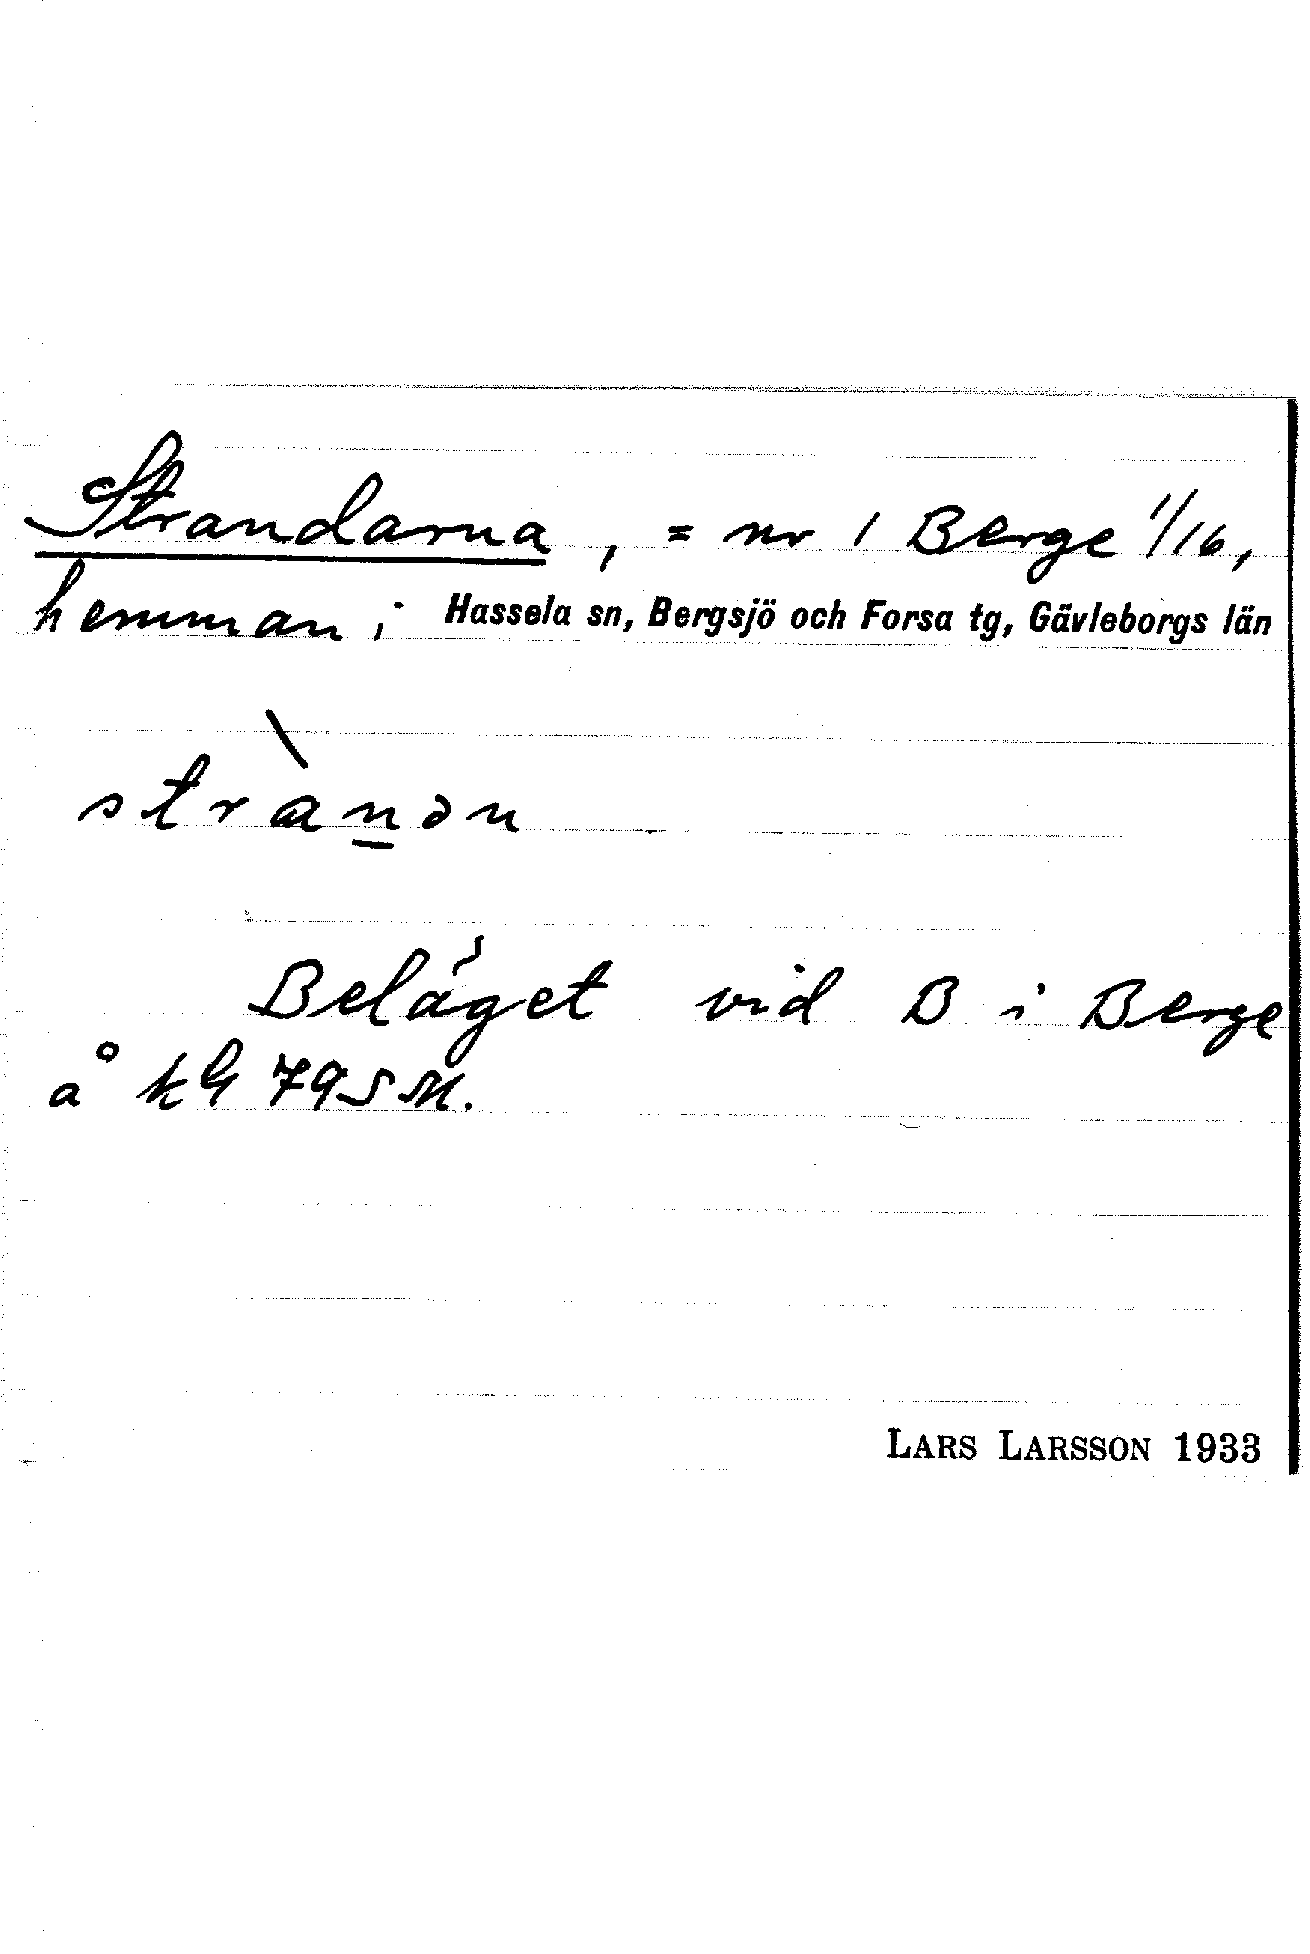 Strandarna, = nr 1 Berge 1/16,
hemman; Hassela sn, Bergsjö och Forsa tg, Gävleborgs län
stràn̲ən
Beläget vid B i Berge
å kbl 79 SM.
LARS LARSSON 1933